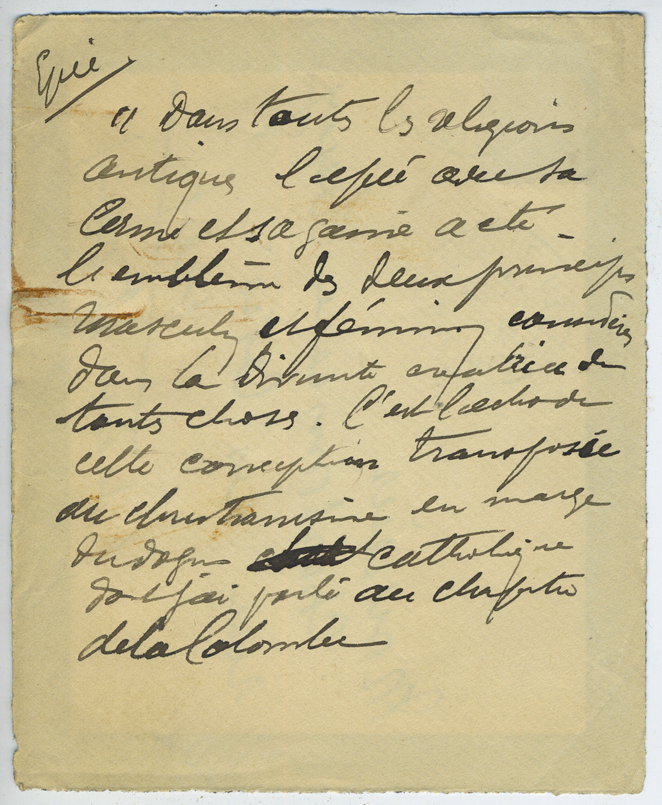 Epée
" Dans toutes les religions
antiques l'epée avec sa
lame et sa gaine a été
l'emblème des deux principes
masculins et féminins considérés
dans la divinité créatrice de
toutes choses. C'est l'echo de
cette conception transposée
du christianisme en marge
du dogme catholique
dont j'ai parlé au chapitre
de la Colombe